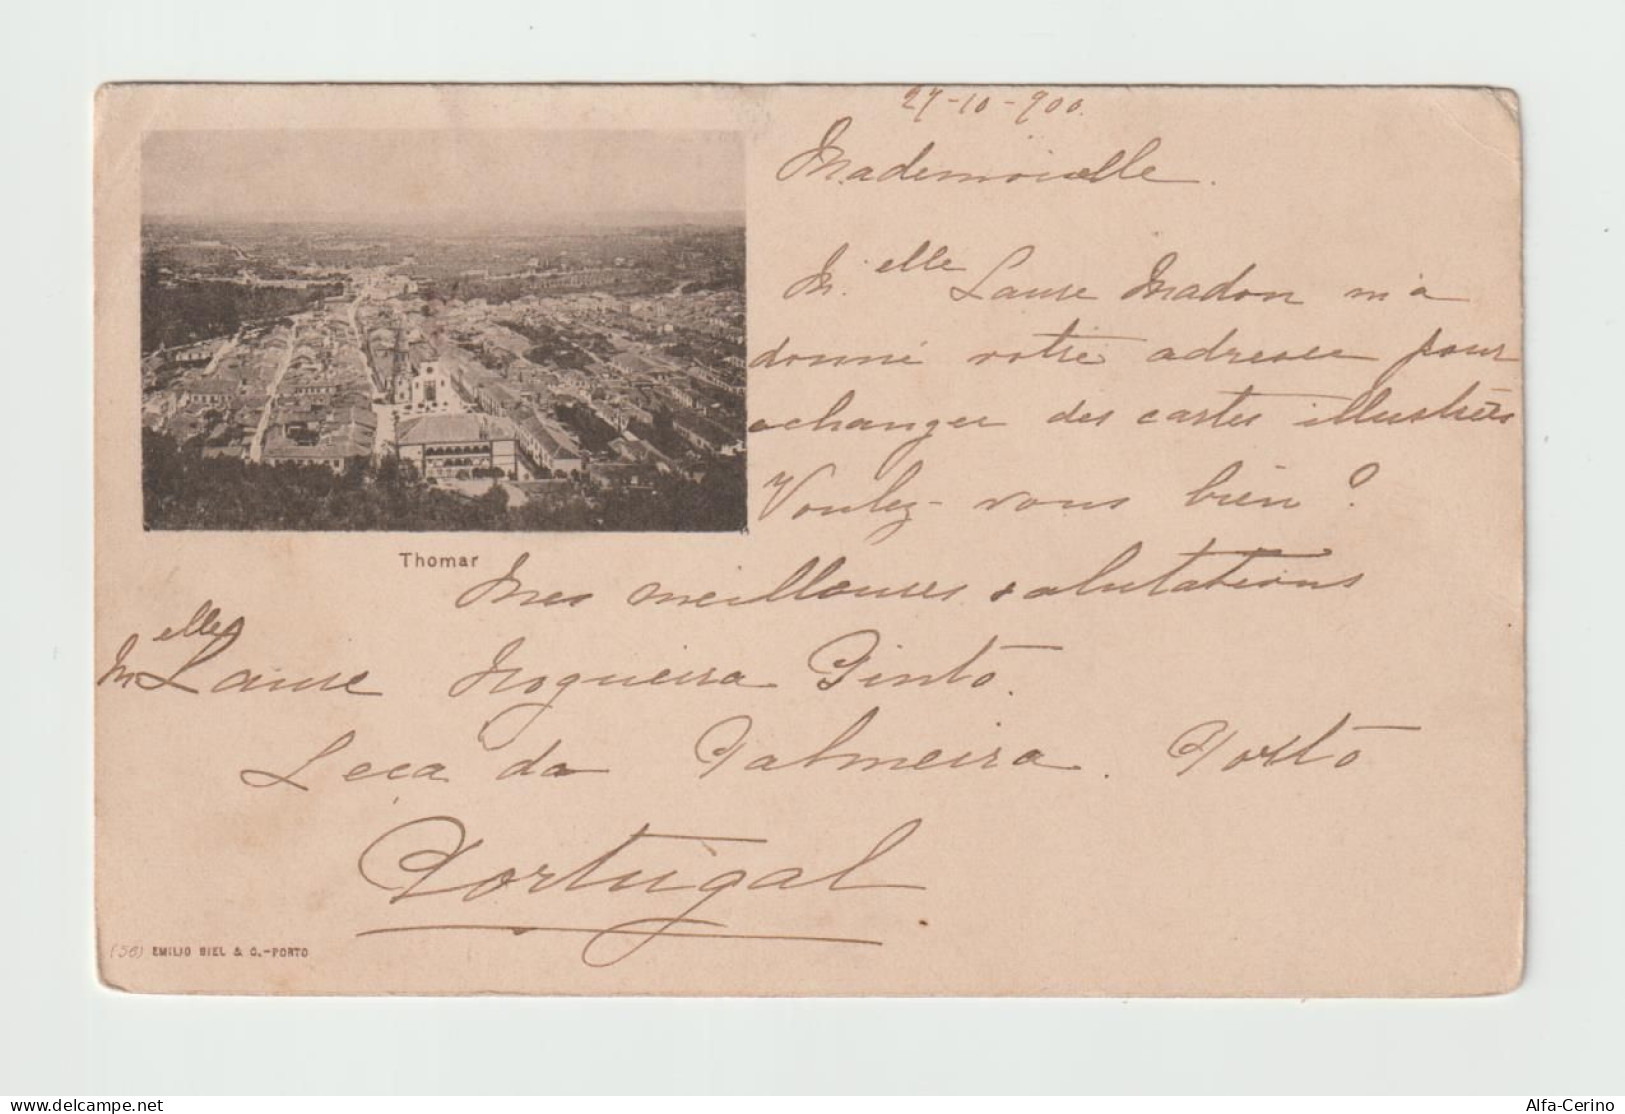 27-10-900.
Mademoiselle.
M.elle Laure Madon m'a
donné votre adresse pour
echanger des cartes illustrées
Voulez-vous bien?
Thomar
Mes meilleures salutations
Melle Laure Nogueira Pinto.
Leça da Palmeira. Porto
Portugal
(56) EMILIO BIEL & C.-PORTO
www.delcampe.net
Alfa-Cerino